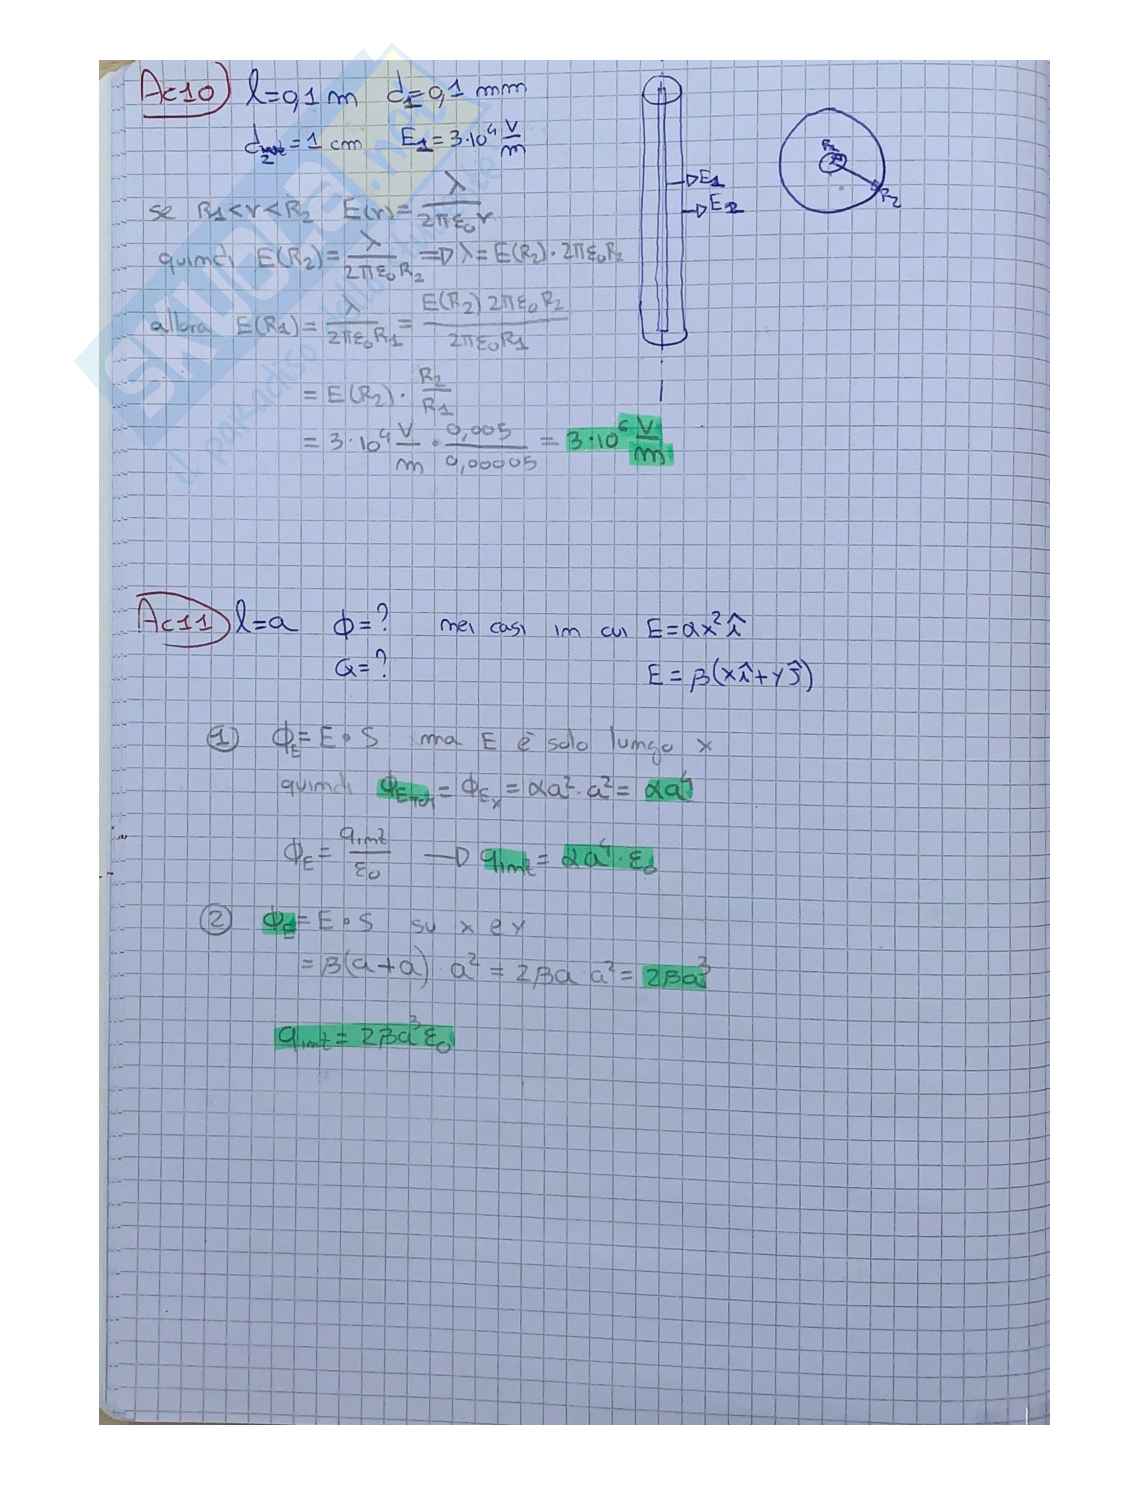 Ac10 l=0,1 m d1=0,1 mm
d2 = 1 cm E1=3·10⁴ V/m
se R1<r<R2 E(r)= λ/2πε0r
quindi E(R2)= λ/2πε0R2 ⇒ λ=E(R2)·2πε0R2
allora E(R1)= λ/2πε0R1 = E(R2) 2πε0R2/2πε0R1
= E(R2)· R2/R1
= 3·10⁴ V/m · 0,005/0,00005 = 3·10⁶ V/m
E1
E2
R1
R2
Ac11 l=a Φ=? nei casi in cui E=αx²î
Q=? E=β(xî+yĵ)
① ΦE=E·S ma E è solo lungo x
quindi ΦETOT=ΦEx=αa²·a²=αa⁴
ΦE= qint/ε0 → qint=αa⁴·ε0
② ΦE=E·S su x e y
=β(a+a)·a²=2βa·a²=2βa³
qint=2βa³ε0
SKUOLA.net
il paradiso dello studente